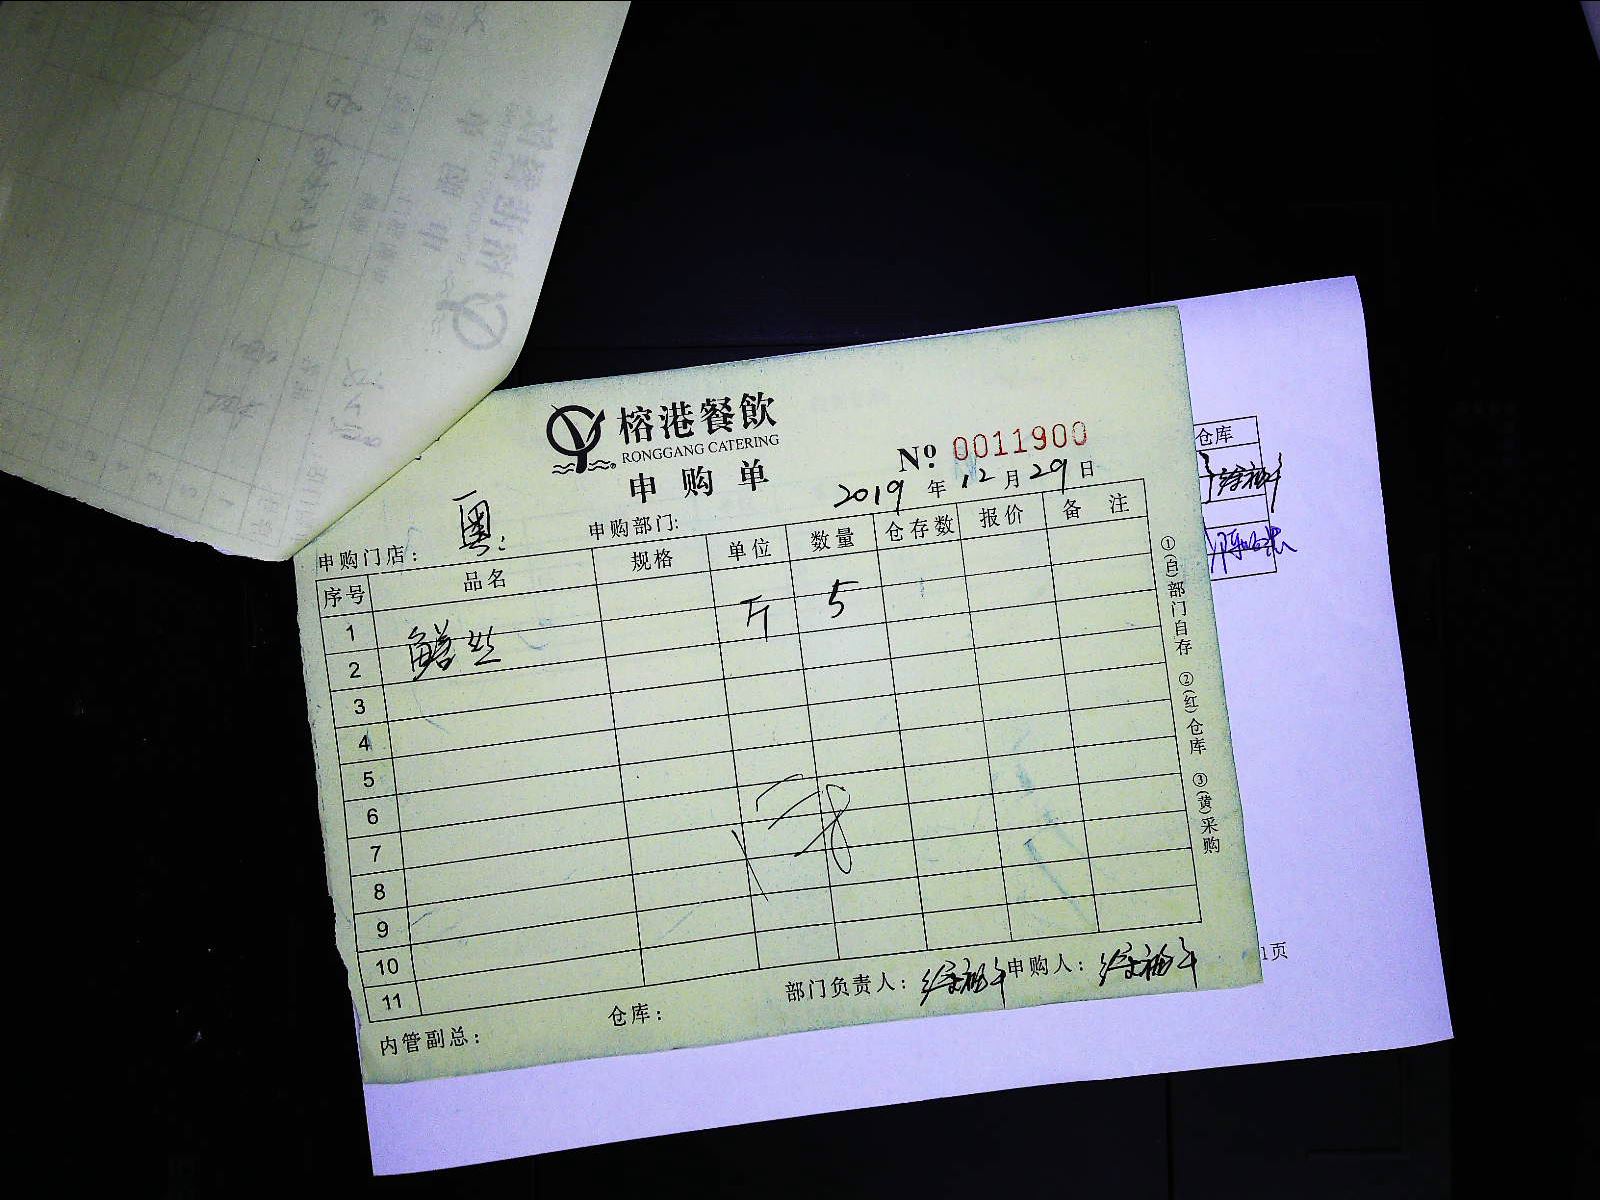 榕港餐飲
RONGGANG CATERING
申购单
№ 0011900
2019年12月29日
申购门店：粤 申购部门:
序号 品名 规格 单位 数量 仓存数 报价 备注
1 鳝丝 斤 5
2
3
4
5
6
7
8
9
10
11
内管副总： 仓库： 部门负责人： 申购人：
①(白)部门自存 ②(红)仓库 ③(黄)采购
仓库
1页